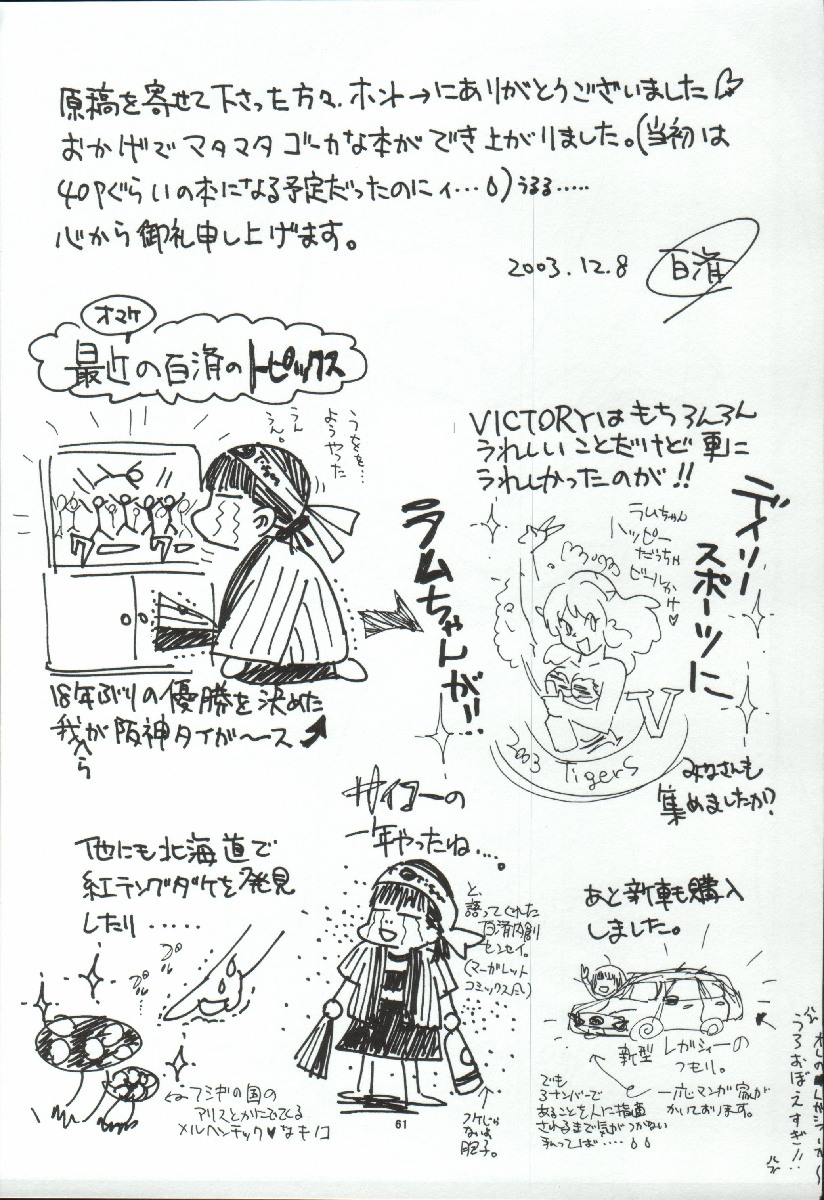 原稿を寄せて下さった方々、ホント→にありがとうございました
おかげでマタマタゴーカな本ができ上がりました。(当初は
40Pぐらいの本になる予定だったのにィ…)うるる……
心から御礼申し上げます。
2003.12.8
百済
オマケ
最近の百済のトピックス
うををを…
ようやった
うん
うん。
18年ぶりの優勝を決めた
我が阪神タイガ〜ス
へら
VICTORYはもちろんろん
うれしいことだけど更に
うれしかったのが!!
デイリー
スポーツに
ラムちゃんが!!
ラムちゃん
ハッピー
だっちゃ
ビールかけ♥
V
2003 Tigers
みなさんも
集めましたか?
サイコーの
一年やったね…。
と、
語ってくれた
百済内創
センセイ。
(マーガレット
コミックスだし)
他にも北海道で
紅テングダケを発見
したり……
プル
プル
…
←フシギの国の
アリスとかにでてくる
メルヘンチック♥なキノコ
61
フケじゃ
ないよ
胆子。
あと新車も購入
しました。
新型レガシィーの
つもり。
一応マンガ家が
かいております。
でも
3ナンバーで
あることを人に指摘
されるまで気がつかない
私ってば……
うろおぼえすぎ!!